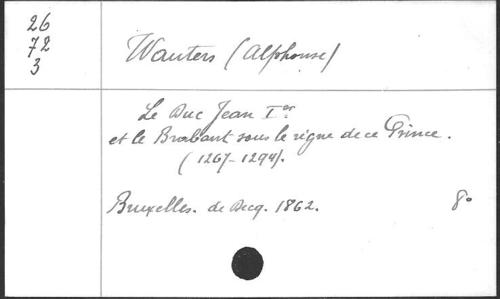 26
72
3
Wauters (Alphonse)
Le Duc Jean Ier
et le Brabant sous le règne de ce Prince.
(1267-1294).
Bruxelles. de Decq. 1862. 8°